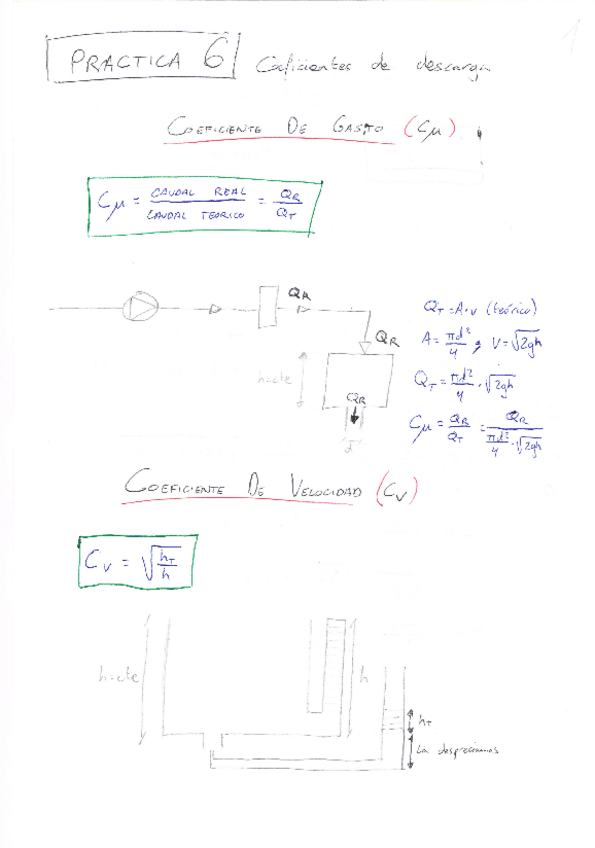 1
PRACTICA 6 Coeficientes de descarga
COEFICIENTE DE GASTO (Cμ)
Cμ = CAUDAL REAL / CAUDAL TEÓRICO = QR / QT
QR
QT = A·v (teórico)
A = πd²/4 ; V = √2gh
QR
h=cte
QR
QT = πd²/4 · √2gh
Cμ = QR/QT = QR / (πd²/4 · √2gh)
COEFICIENTE DE VELOCIDAD (Cv)
Cv = √(hT/h)
h=cte
h
hT
La despreciamos